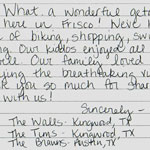 What a wonderful get
here in Frisco! Never
of biking, shopping, sw
ng. Our kiddos enjoyed all
le. Our family loved
ying the breathtaking
k you so much for shar
with us!
Sincerely -
The Walls - Kingwood, TX
The Tims - Kingwood, TX
The Brauns - Austin, TX